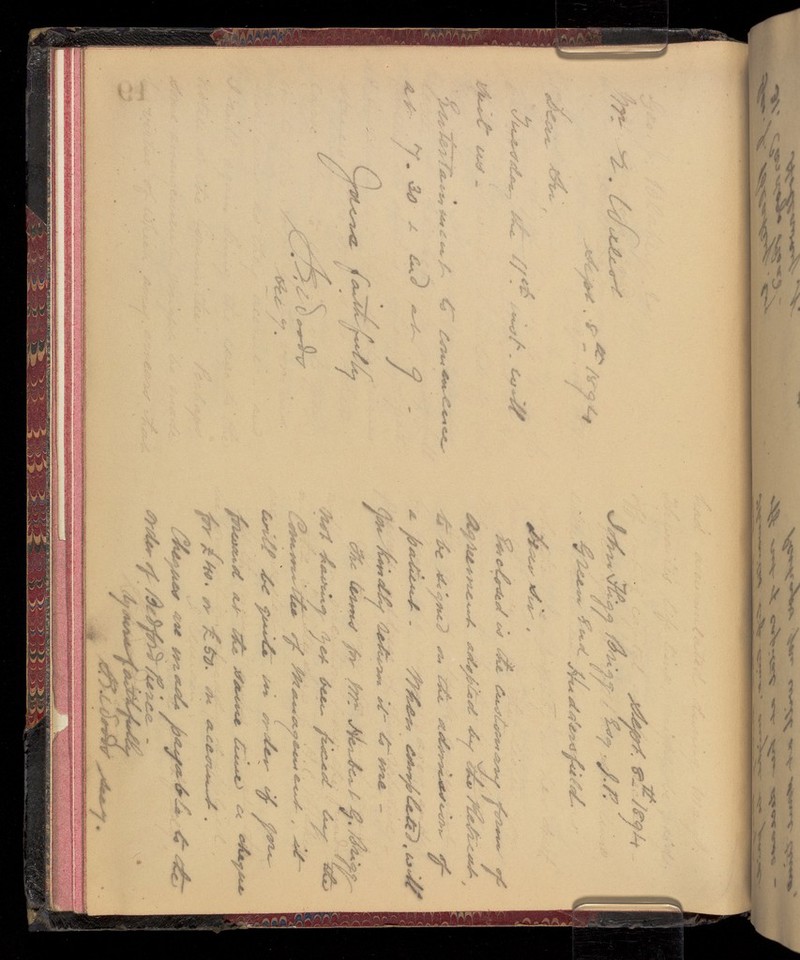 Sept. 8th 1894
Mr. Walcot
Dear Sir,
Tuesday the 11th inst. will
suit us -
Entertainment to commence
at 7.30 & end at 9 -
Yours faithfully
Secy.
Sept. 8th 1894
John Brigg Esq J.P.
Green End Huddersfield
Dear Sir.
Enclosed is the customary form of
Agreement adopted by the Retreat,
to be signed on the admission of
a patient. When completed, will
you kindly return it to me -
The terms for Mr. Herbert G. Brigg
not having yet been fixed by the
Committee of Management, it
will be quite in order if you
forward at the same time a cheque
for £40. or £50. on account.
Cheques are made payable to the
order of Bedford Pierce
Yours faithfully
Secy.
61